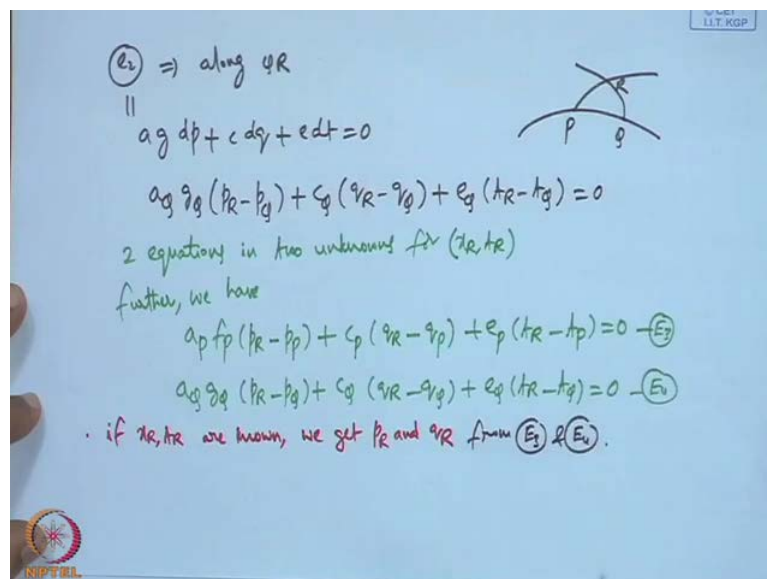 © CET
I.I.T. KGP
(e₂) ⇒ along QR
||
a g dp + c dq + e dt = 0
P
Q
R
a_Q g_Q (p_R - p_Q) + c_Q (q_R - q_Q) + e_Q (t_R - t_Q) = 0
2 equations in two unknowns for (x_R, t_R)
further, we have
a_P f_P (p_R - p_P) + c_P (q_R - q_P) + e_P (t_R - t_P) = 0 — (E₃)
a_Q g_Q (p_R - p_Q) + c_Q (q_R - q_Q) + e_Q (t_R - t_Q) = 0 — (E₄)
. if x_R, t_R are known, we get p_R and q_R from (E₃) & (E₄).
NPTEL